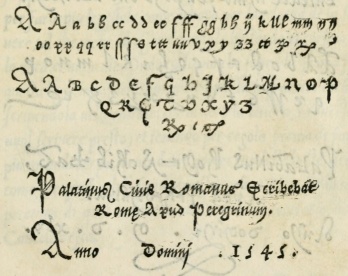 A A a b b cc dd ee fff gg hh ij k ll m m n
oo pp qq rr ſſſ s t tt uu v x y zz
A A B C D E F G H I K L M N O P
Q R S T V X Y Z
Palatinus Ciuis Romanus Scribebat
Romę Apud Peregrinum.
Anno Domini . 1 5 4 5 .